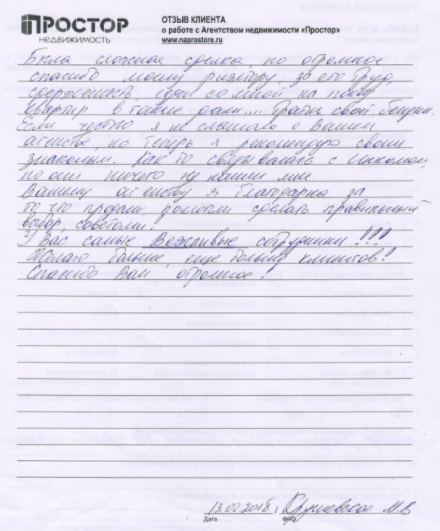 ПРОСТОР
НЕДВИЖИМОСТЬ
ОТЗЫВ КЛИЕНТА
о работе с Агентством недвижимости «Простор»
www.naprostore.ru
Была сложная сделка, но огромное
спасибо моему риэлтору за его труд,
сдержанность ездил со мной на показ
квартир в такие дали.... Тратил свой бензин.
Если честно я не слышала о Вашем
агенстве, но теперь я рекомендую своим
знакомым. Как то связывалась с Инкомом,
но они ничего не нашли мне.
Вашему агенству я благодарна за
то что продали, помогли сделать правильный
выбор, советами.
У Вас самые Вежливые сотрудники!!!
Желаю больше, еще больше клиентов!
Спасибо Вам огромное!
13.02.2018г.
М.В
Дата
ФИО